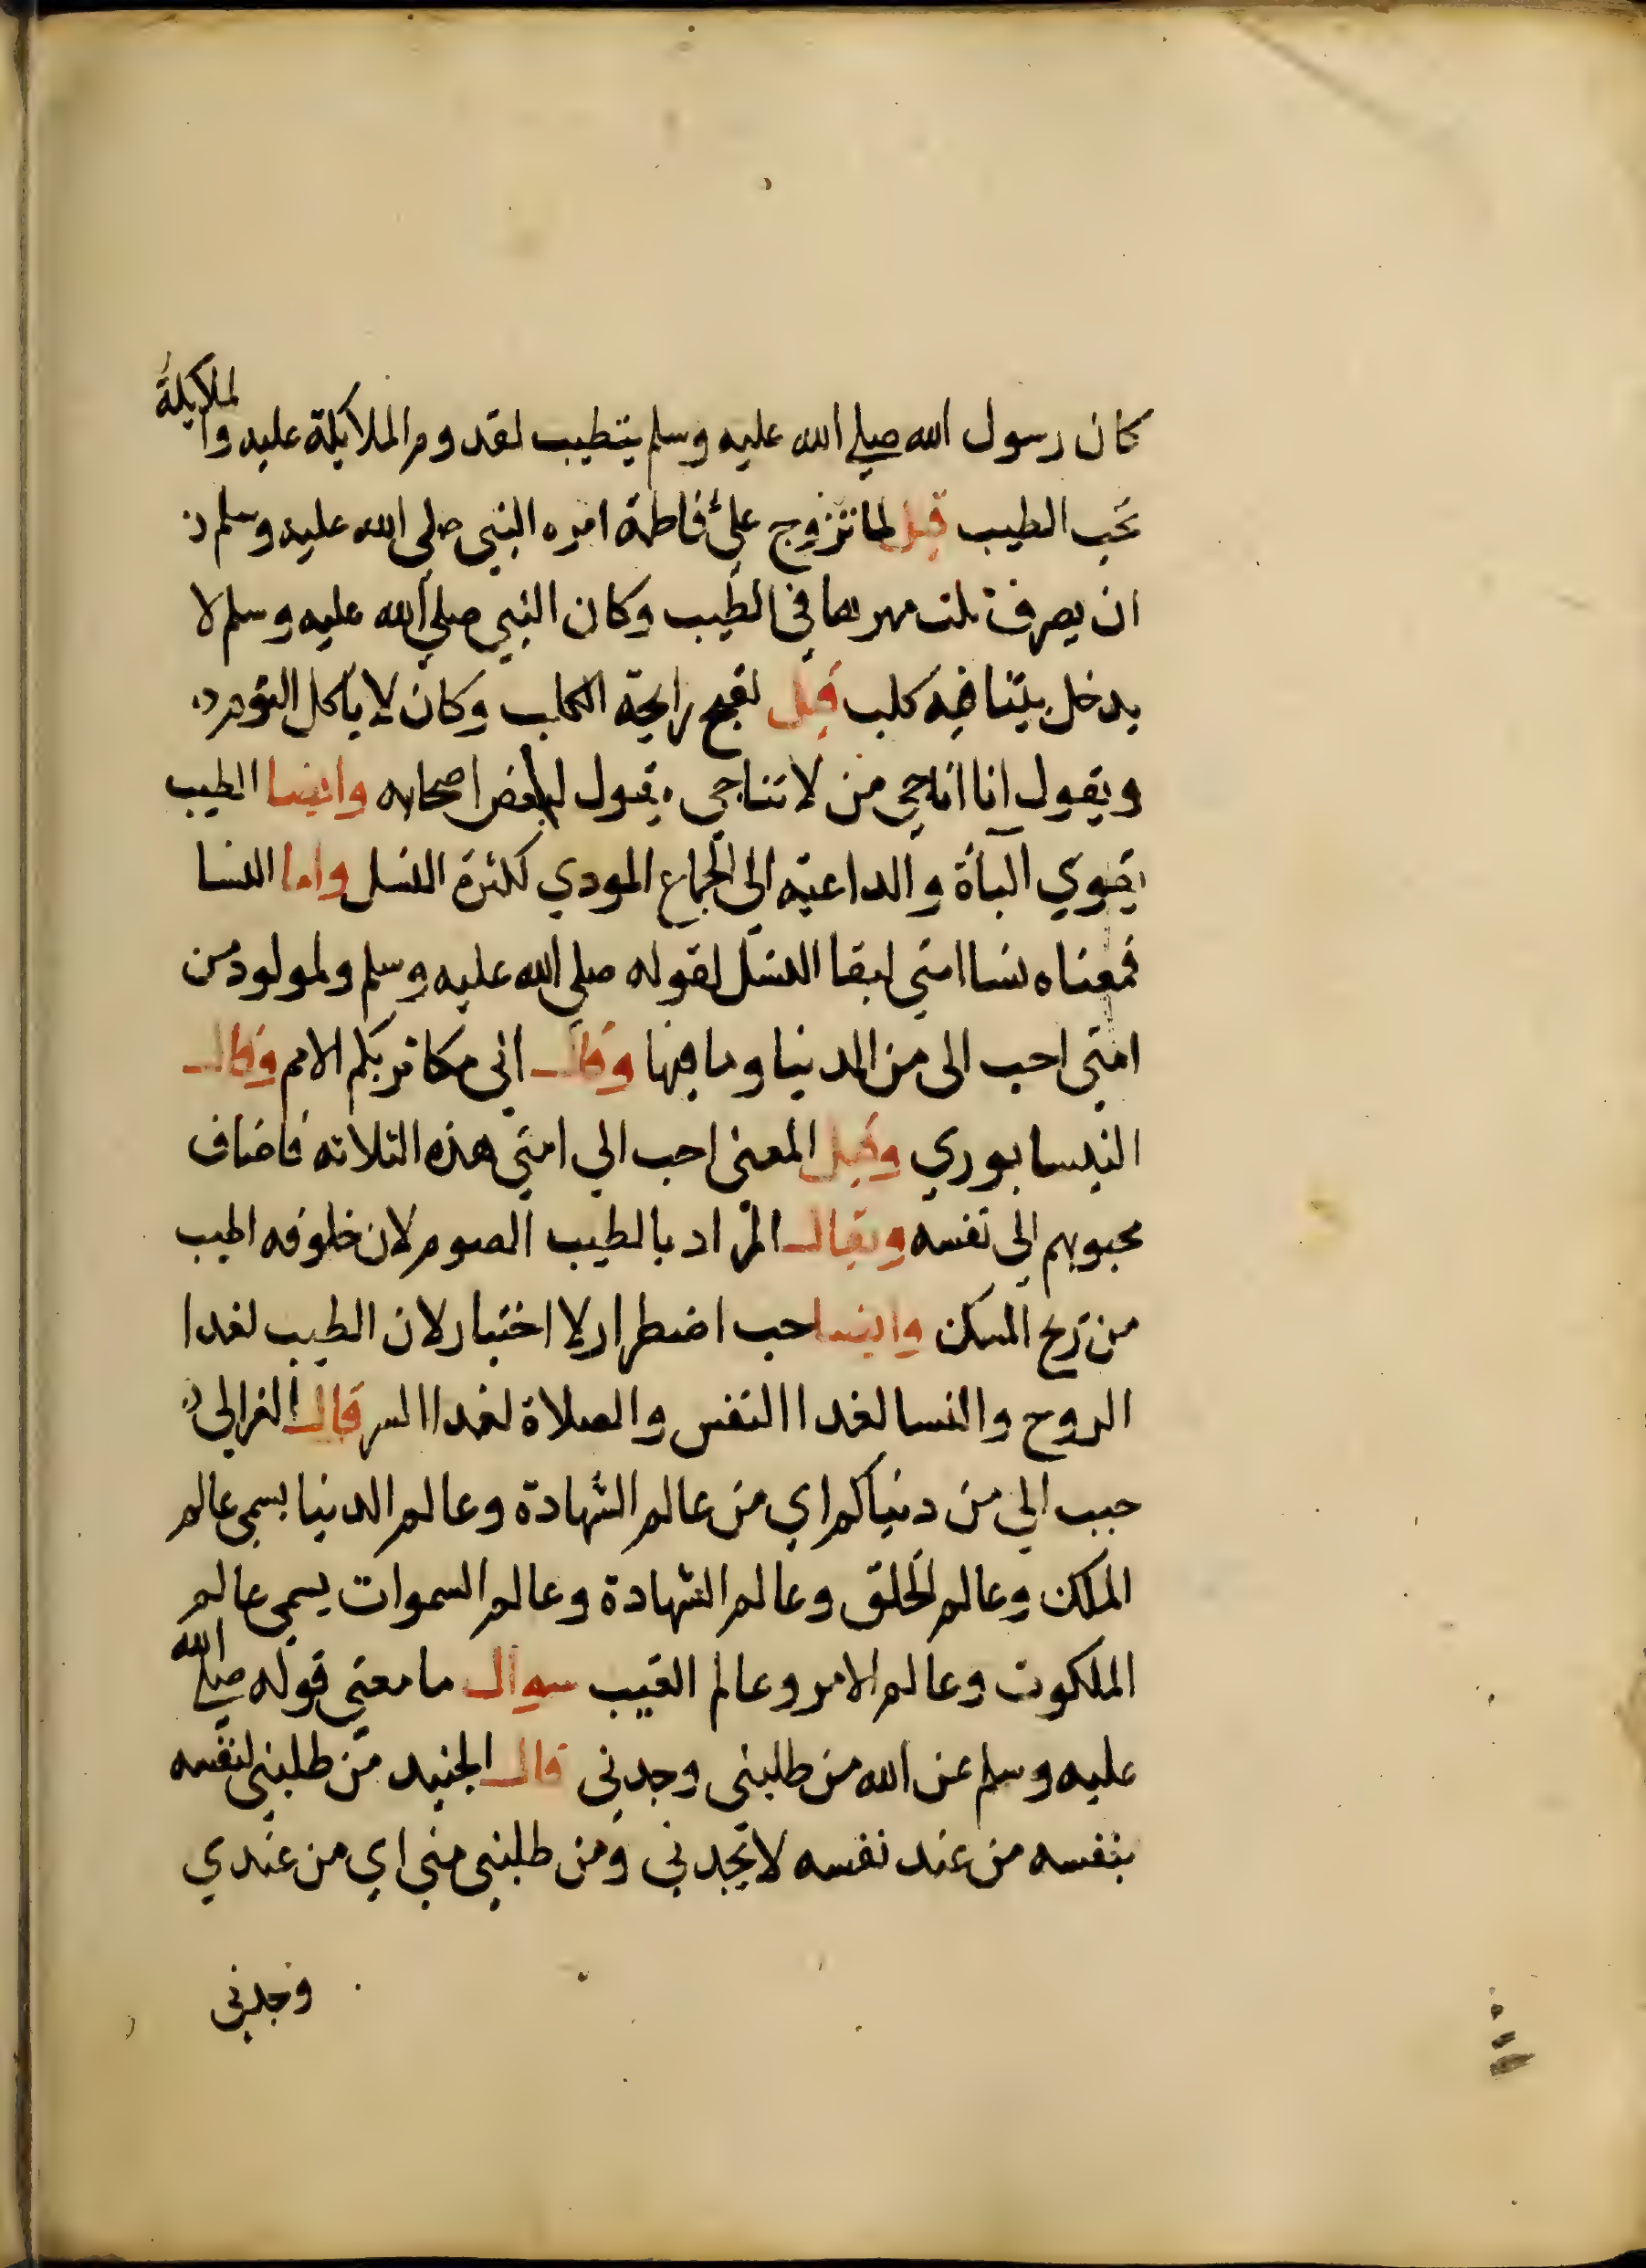 كان رسول الله صلى الله عليه وسلم يتطيب لقدوم الملايكة عليه والملايكة
تحب الطيب قيل لما تزوج علي فاطمة امره النبي صلى الله عليه وسلم
ان يصرف ثلث مهرها في الطيب وكان النبي صلى الله عليه وسلم لا
يدخل بيتا فيه كلب قيل لقبح رايحة الكلب وكان لا ياكل الثوم
ويقول انا اناجي من لا تناجي يقول لبعض اصحابه وايضا الطيب
يقوي الباة والداعية الى الجماع المودي لكثرة النسل واما النسا
فمعناه نسا امتي لبقا النسل لقوله صلى الله عليه وسلم ولمولود من
امتي احب الى من الدنيا وما فيها وقال انى مكاثر بكم الامم وقال
النيسابوري وقيل المعنى احب الي امتي هذه الثلاثه فاضاف
محبوبهم الى نفسه ويقال المراد بالطيب الصوم لان خلوفه اطيب
من ريح المسك وايضا حب اضطرار لا اختيار لان الطيب لغدا
الروح والنسا لغدا النفس والصلاة لغدا السر قال الغزالي
حبب الي من دنياكم اي من عالم الشهادة وعالم الدنيا يسمى عالم
الملك وعالم الخلق وعالم الشهادة وعالم السموات يسمى عالم
الملكوت وعالم الامر وعالم الغيب سوال ما معنى قوله صلى الله
عليه وسلم عن الله من طلبني وجدني قال الجنيد من طلبني لنفسه
بنفسه من عند نفسه لا يجدني ومن طلبني مني اي من عندي
وجدني